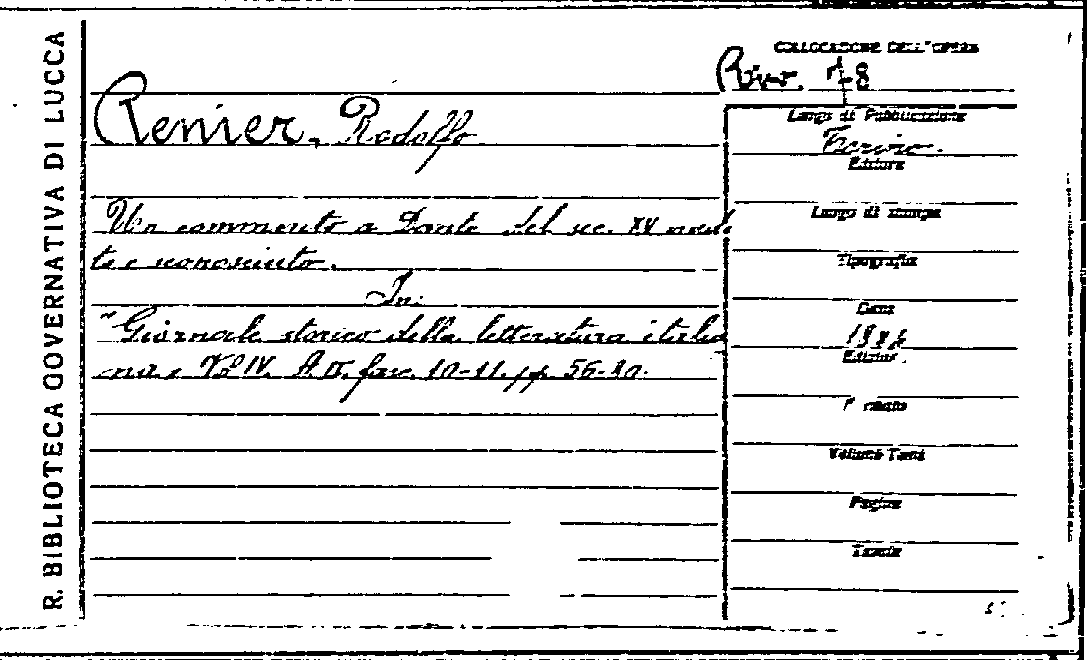 R. BIBLIOTECA GOVERNATIVA DI LUCCA
COLLOCAZIONE DELL'OPERA
Renier, Rodolfo
Un commento a Dante del sec. XV
In:
"Giornale storico della letteratura italia
na" Vol IV. A. II. fasc. 10-11. pp. 56-
Luogo di Pubblicazione
Torino.
Editore
Luogo di stampa
Tipografia
Data
Edizione
Volume Tomi
Pagine
Tavole